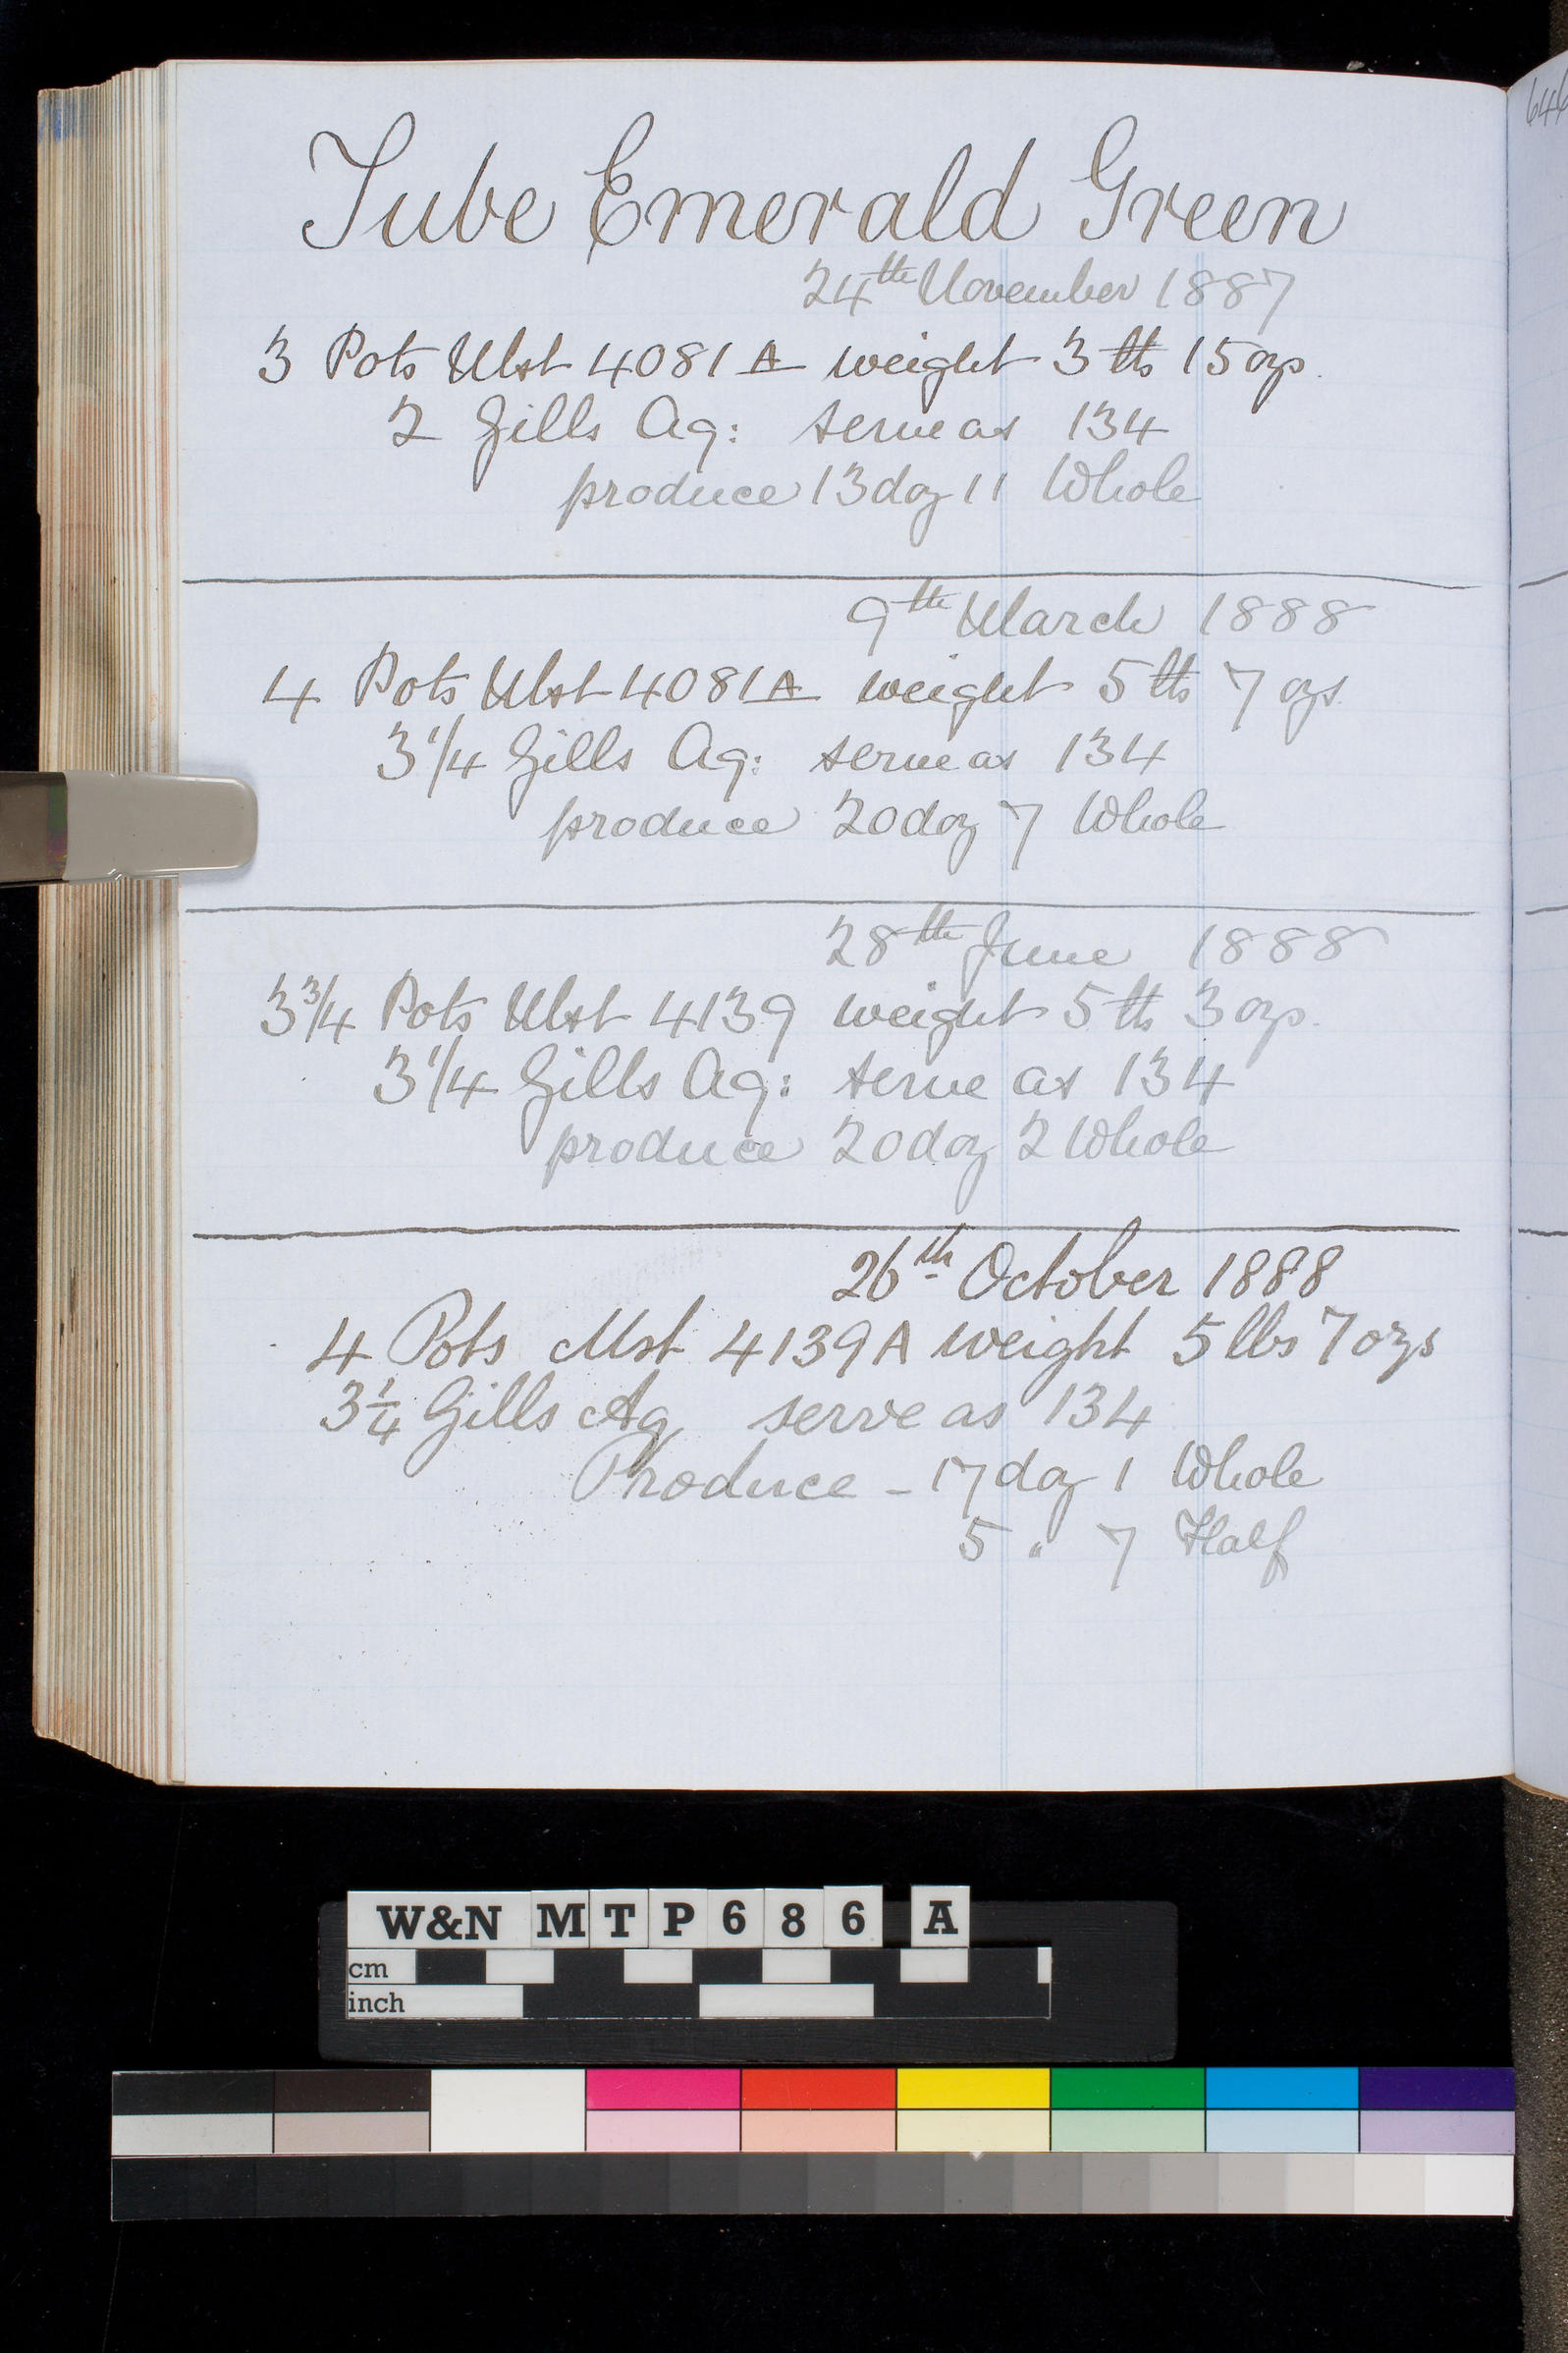 Tube Emerald Green
24th November 1887
3 Pots Mst 4081A weight 3 lbs 15 ozs.
2 Gills Aq: serve as 134
produce 13 doz 11 Whole
9th March 1888
4 Pots Mst 4081A weight 5 lbs 7 ozs.
3 1/4 Gills Aq: serve as 134
produce 20 doz 7 Whole
28th June 1888
3 3/4 Pots Mst 4139 weight 5 lbs 3 ozs.
3 1/4 Gills Aq: serve as 134
produce 20 doz 2 Whole
26th October 1888
4 Pots Mst 4139A weight 5 lbs 7 ozs
3 1/4 Gills Aq serve as 134
Produce – 17 doz 1 Whole
5 " 7 Half
W&N MTP686 A
cm
inch